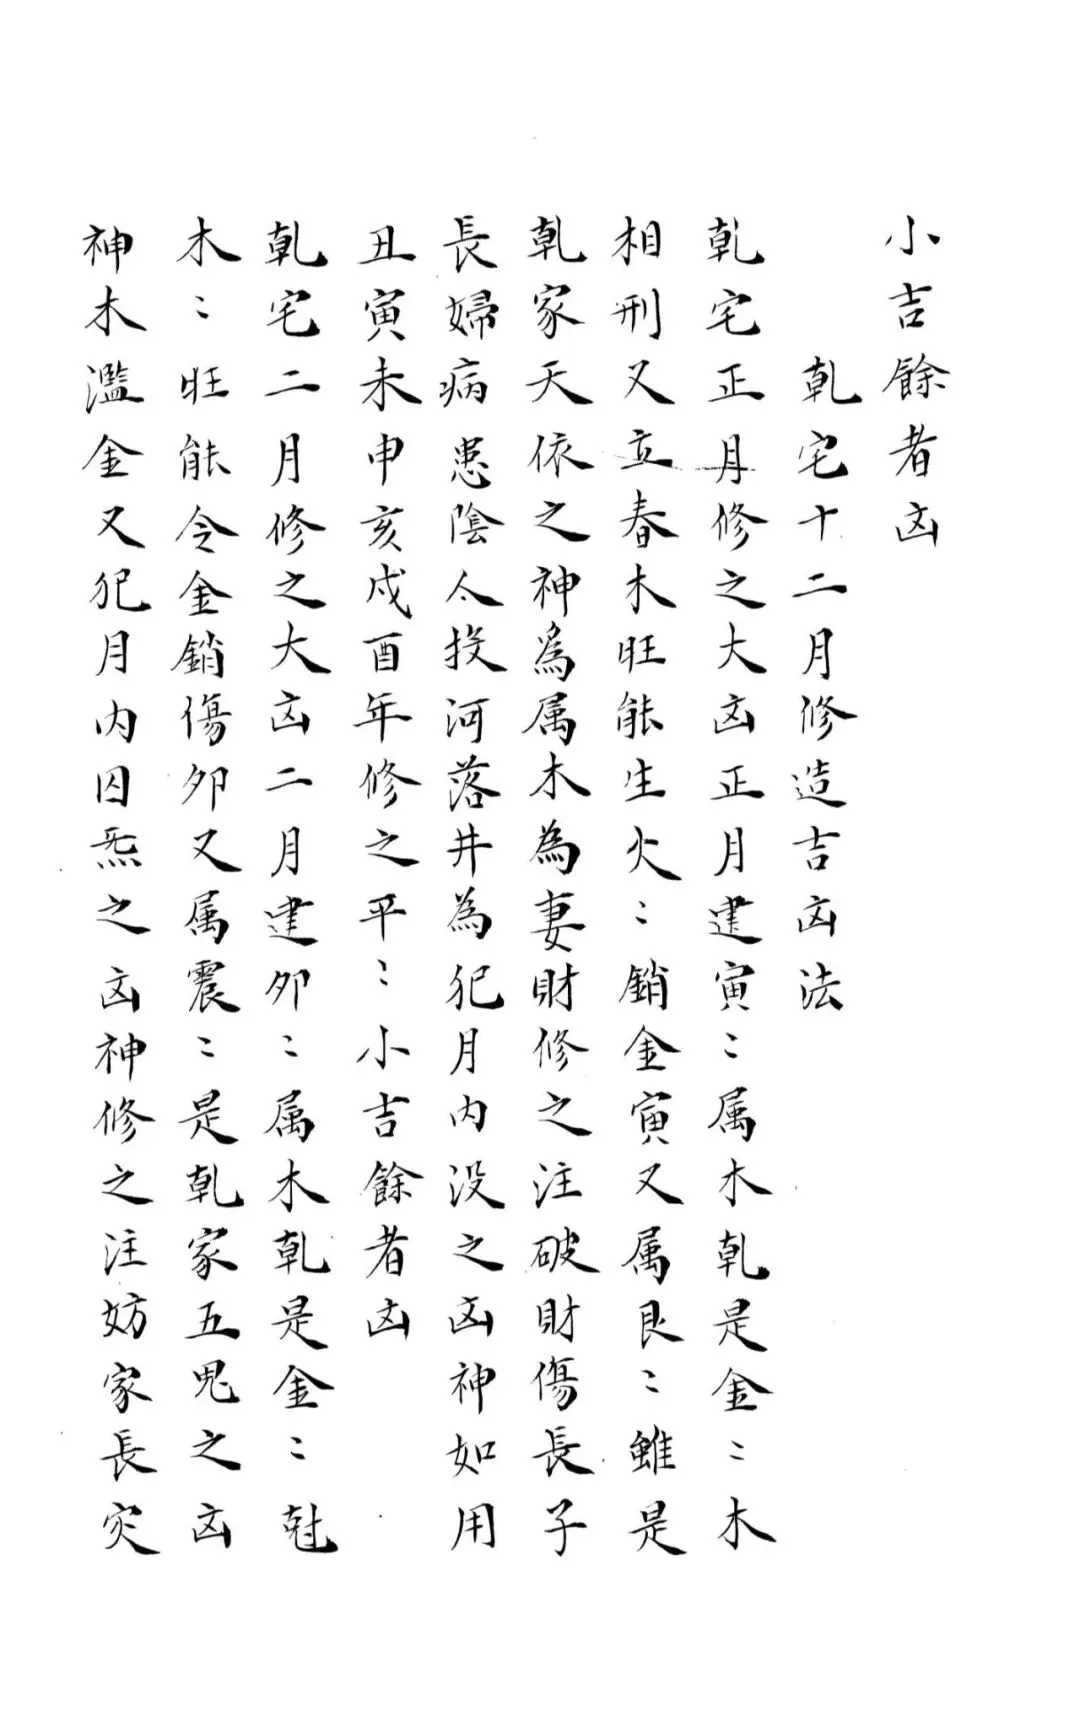 小吉餘者凶
乹宅十二月修造吉凶法
乹宅正月修之大凶正月建寅〻属木乹是金〻木
相刑又立春木旺能生火〻銷金寅又属艮〻雖是
乹家天依之神爲属木為妻財修之注破財傷長子
長婦病患陰人投河落井為犯月內没之凶神如用
丑寅未申亥戍酉年修之平〻小吉餘者凶
乹宅二月修之大凶二月建夘〻属木乹是金〻尅
木〻旺能令金銷傷夘又属震〻是乹家五鬼之凶
神木濫金又犯月內囚炁之凶神修之注妨家長灾